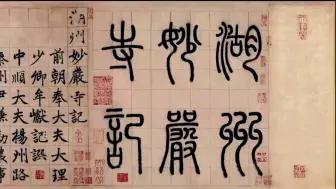 湖州
妙嚴
寺記
湖州妙嚴寺記
前朝奉大夫大理
少卿牟巘記
中順大夫揚州路
泰州尹兼勸農事